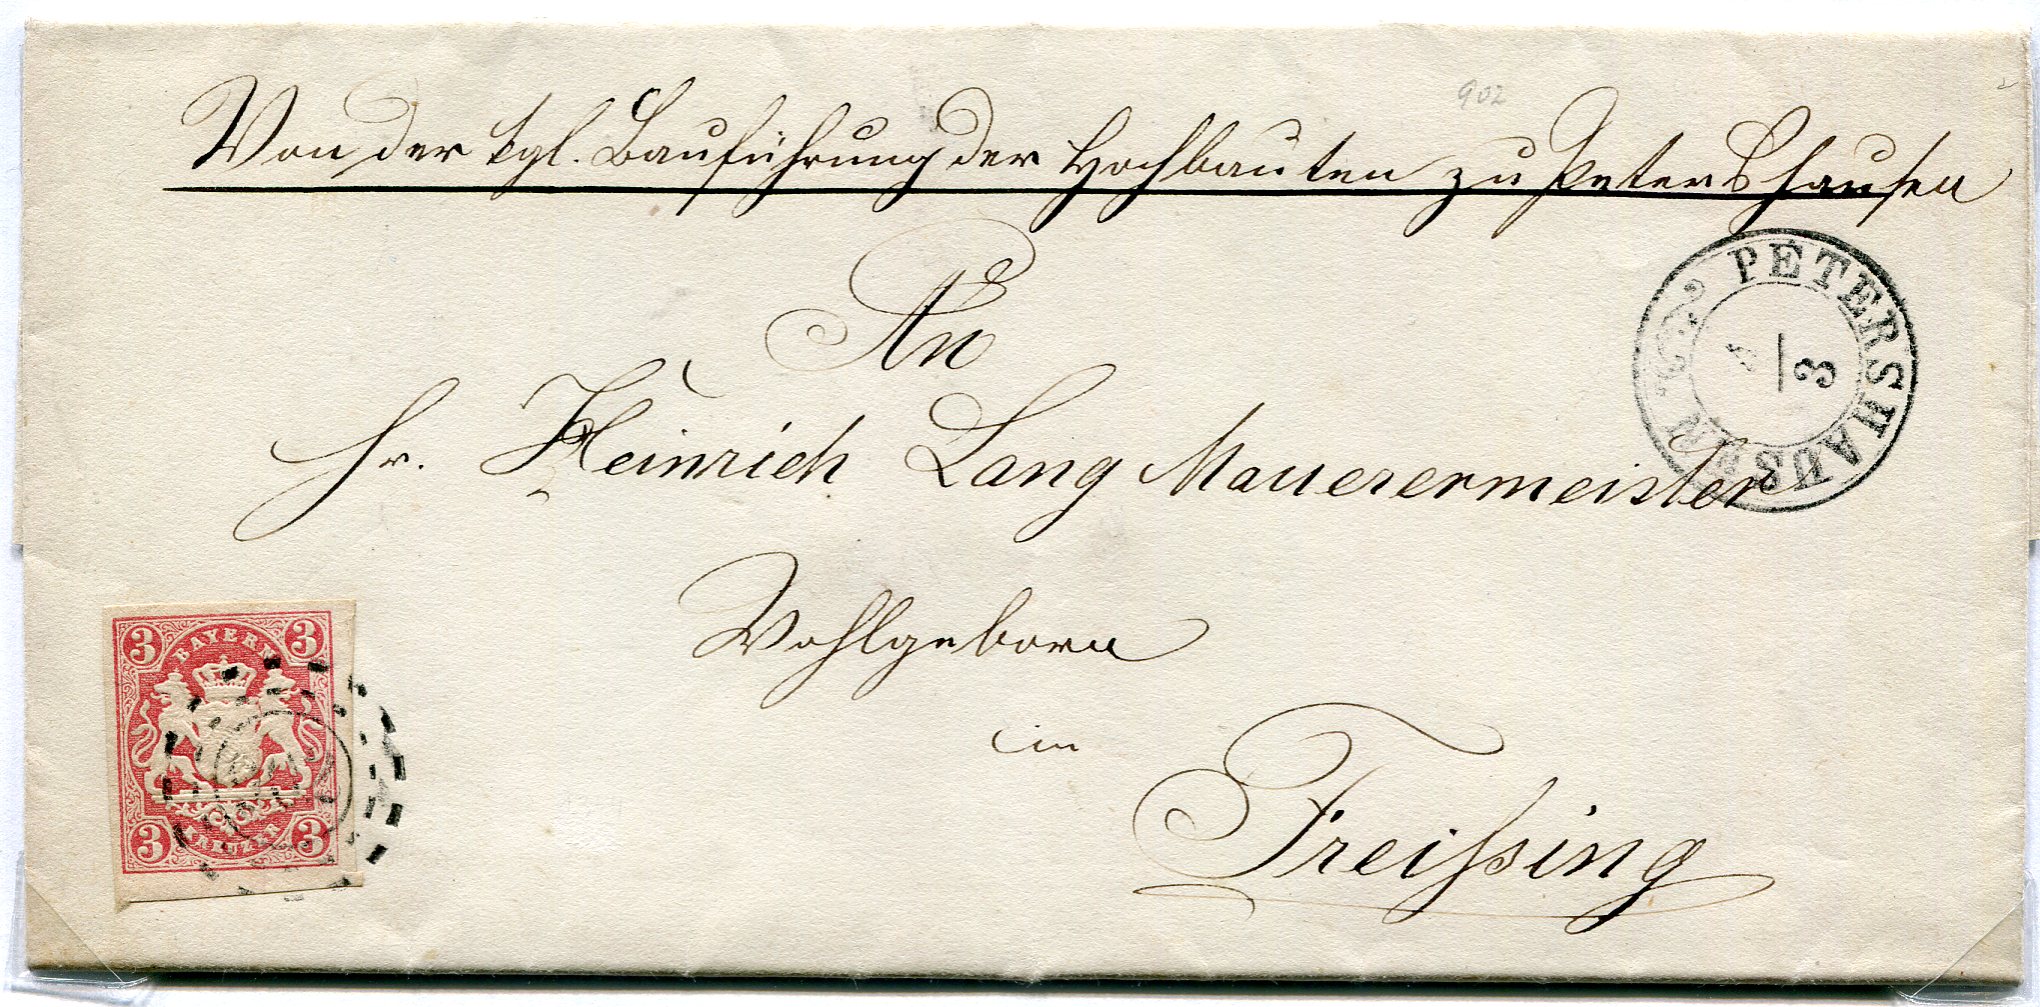 902
Von der kgl. Bauführung der Hochbauten zu Petershausen
PETERSHAUSEN
3
An
Hr. Heinrich Lang Mauerermeister
Wohlgeborn
in
Freißing
3 BAYERN 3
3 KREUZER 3